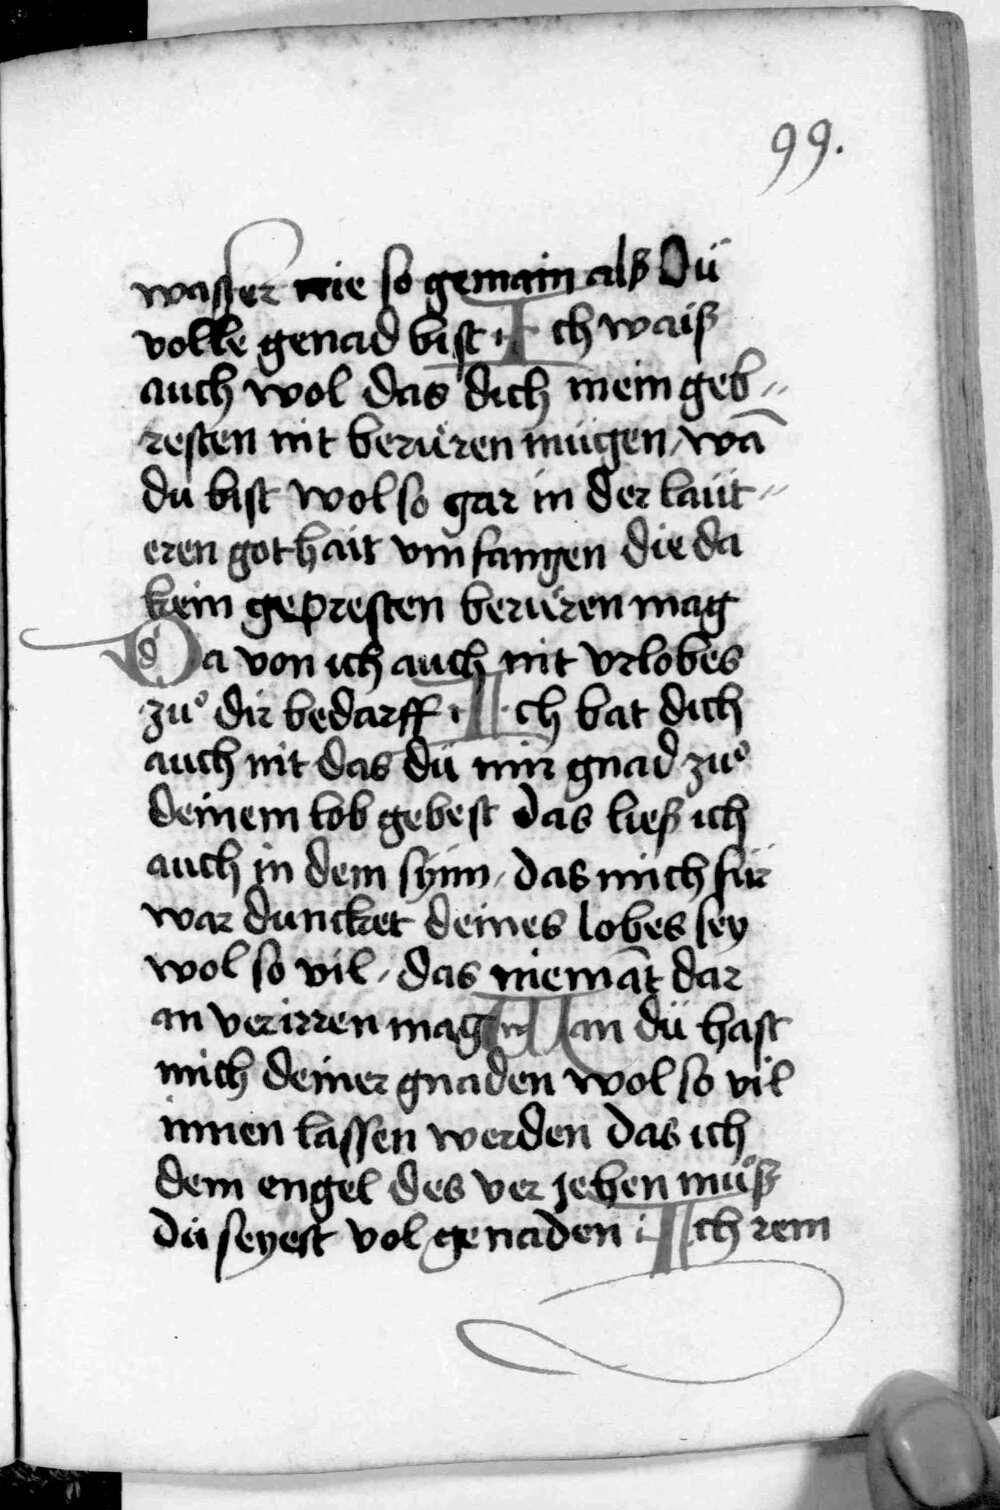 99.
wasser nie so gemain alß Dü
volle genad bist Ich waiß
auch wol das dich mein geb〃
resten nit beruͤren mügen / wā
du bist wol so gar in der laüt〃
eren gothait vmfangen die da
kein gepresten beruͤren mag
Da von ich auch nit vrlobes
zuͦ dir bedarff Ich bat dich
auch nit das dü mir gnad zuͦ
deinem lob gebest Das ließ ich
auch in dem synn / das mich für
war duncket deines lobes sey
wol so vil / das niemāt dar
an verirren mag Wan dü hast
mich deiner gnaden wol so vil
innen lassen werden Das ich
dem engel des ver jehen muͦß
dü seyest vol genaden Ich rem